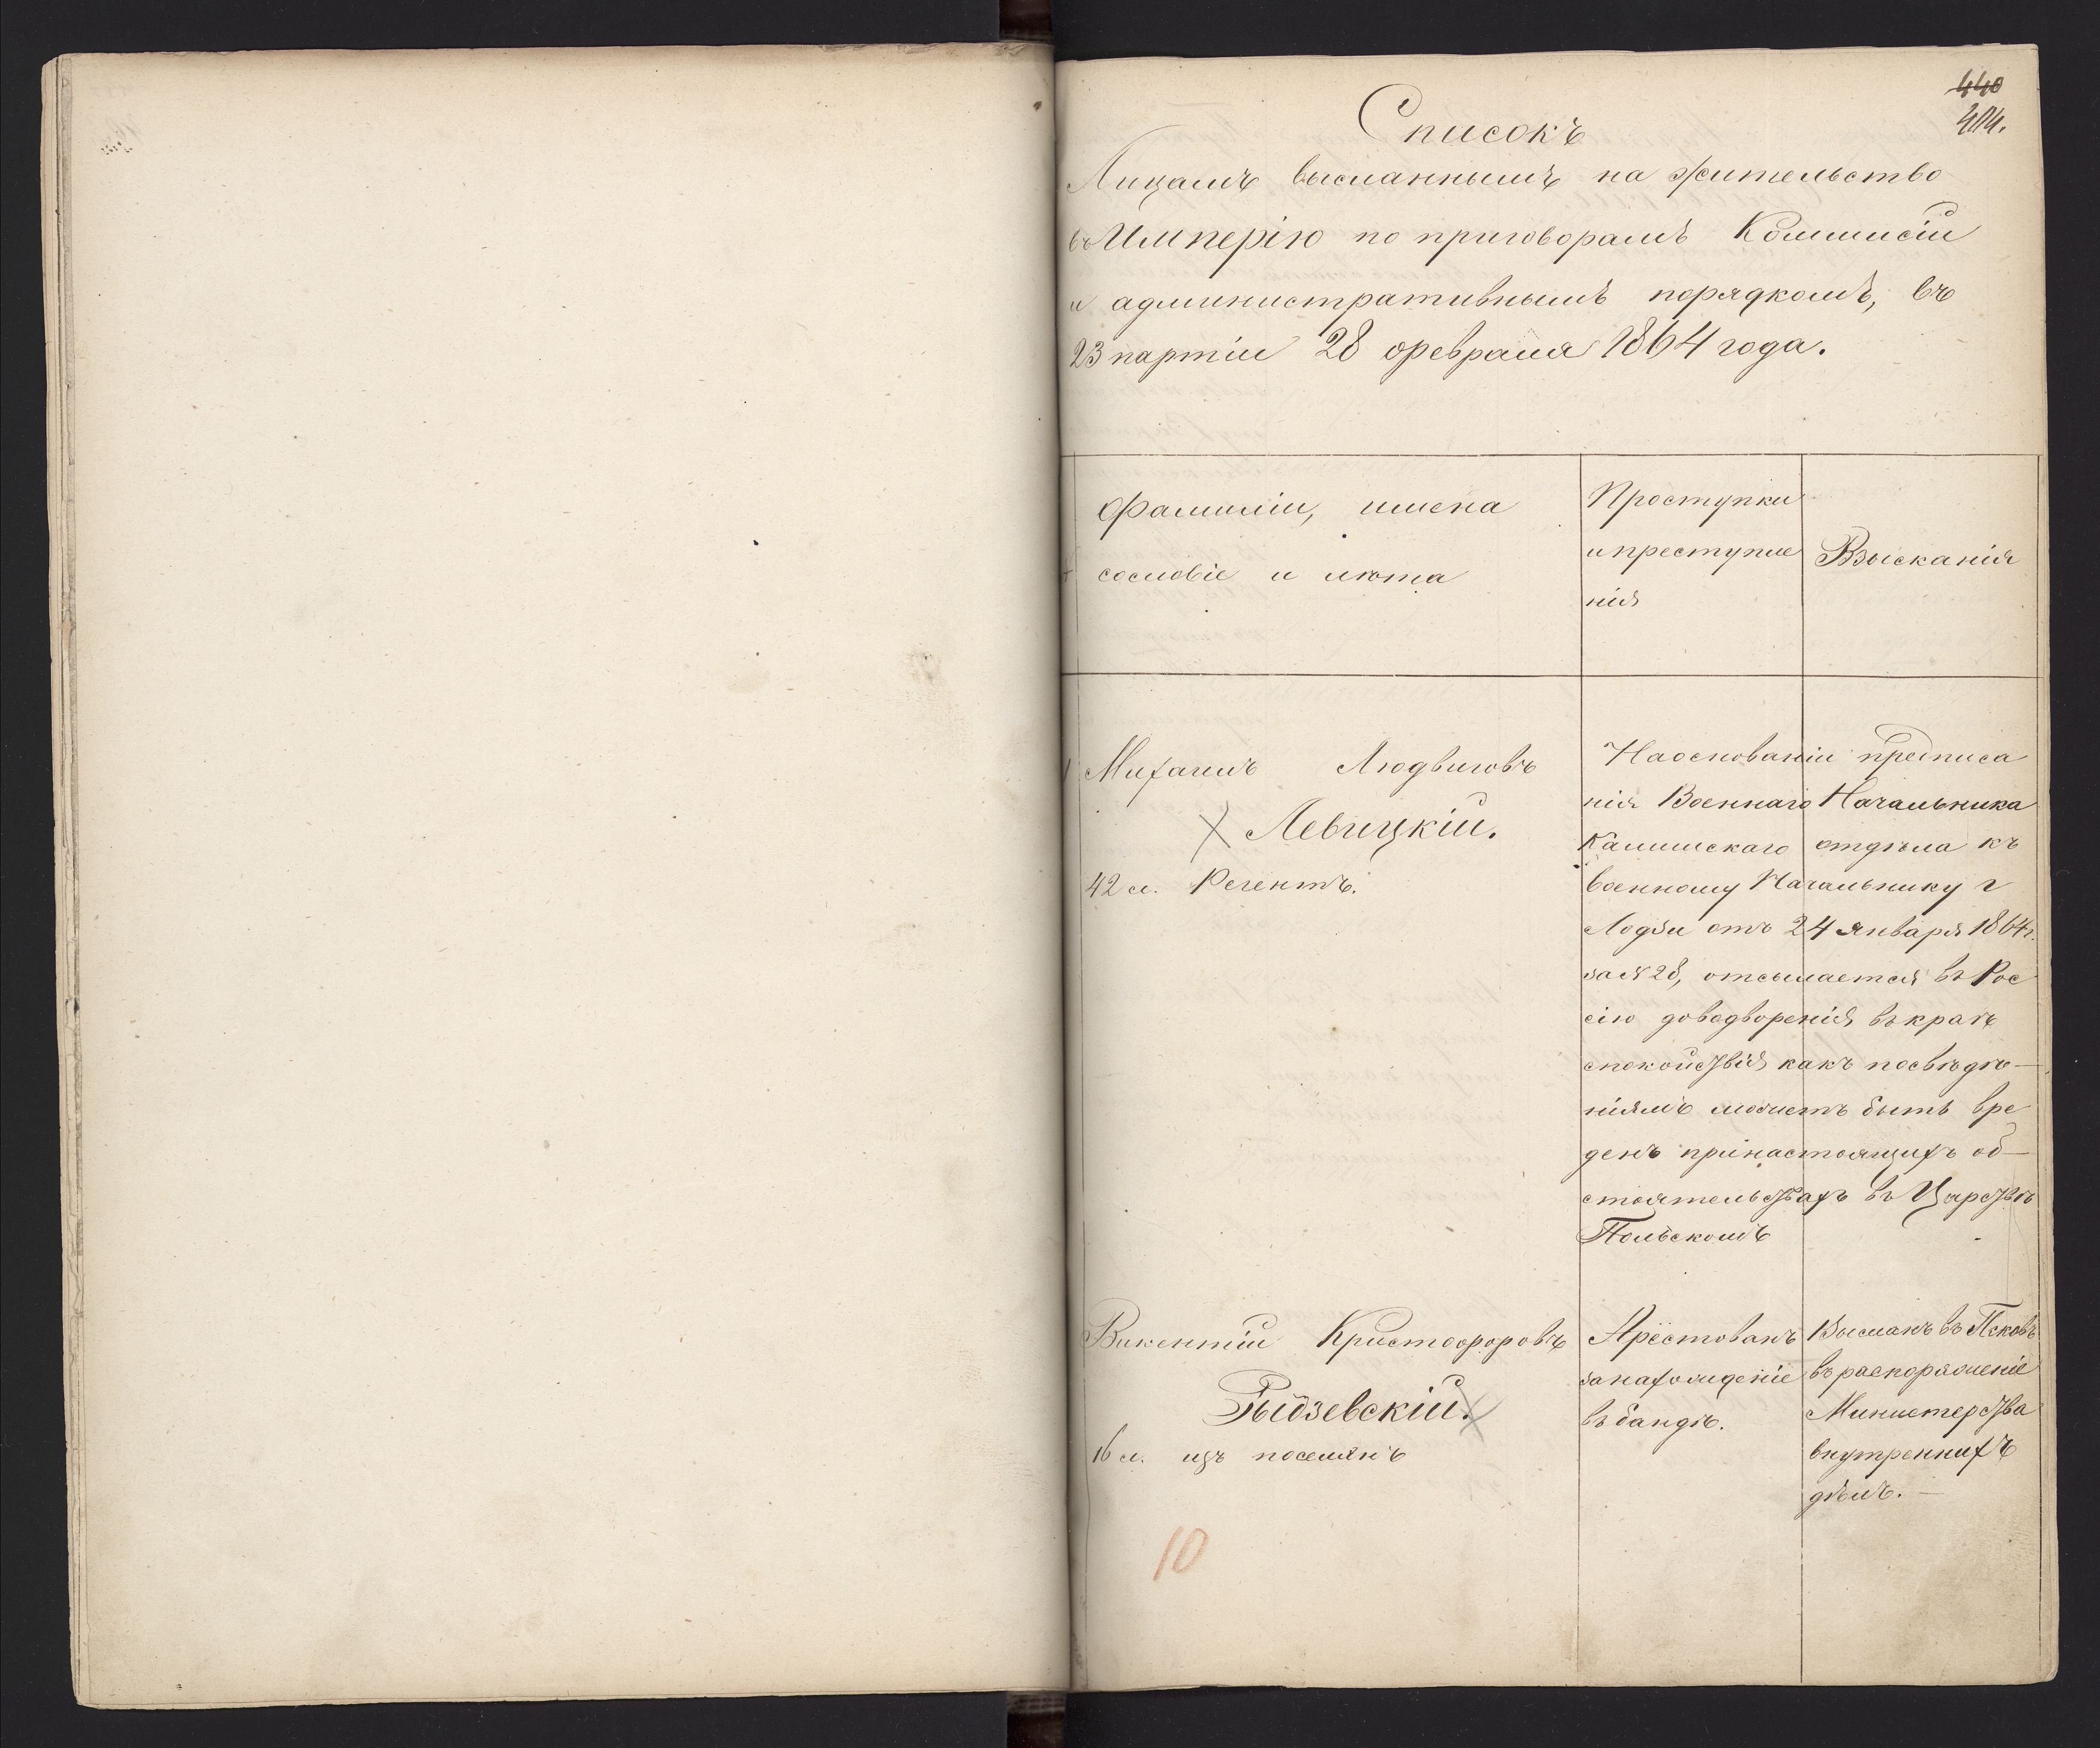 440
404.
Списокъ
Лицамъ высланнымъ на жительство
въ Имперію по приговорамъ Коммисіи
и административнымъ порядкомъ, въ
23 партіи 28 февраля 1864 года.
Фамиліи, имена
сословіе и лѣта
Проступки
и преступле
нія
Взысканія
1 Михаилъ Людвиговъ
Левицкій.
42 л. Регентъ.
На основаніи предписа
нія Военнаго Начальника
Калишскаго отдѣла къ
военному Начальнику г
Лодзи отъ 24 января 1864 г.
за № 28, отсылается въ Рос
сію до водворенія въ краѣ
спокойствія какъ по свѣдѣ-
ніямъ можетъ быть вре
денъ при настоящихъ об-
стоятельствахъ въ Царствѣ
Польскомъ
Викентій Кристофоровъ
Рыдзевскій.
16 л. изъ поселянъ
Арестованъ
за нахожденіе
въ бандѣ.
Высланъ въ Псковъ
въ распоряженіе
Министерства
внутреннихъ
дѣлъ. —
10